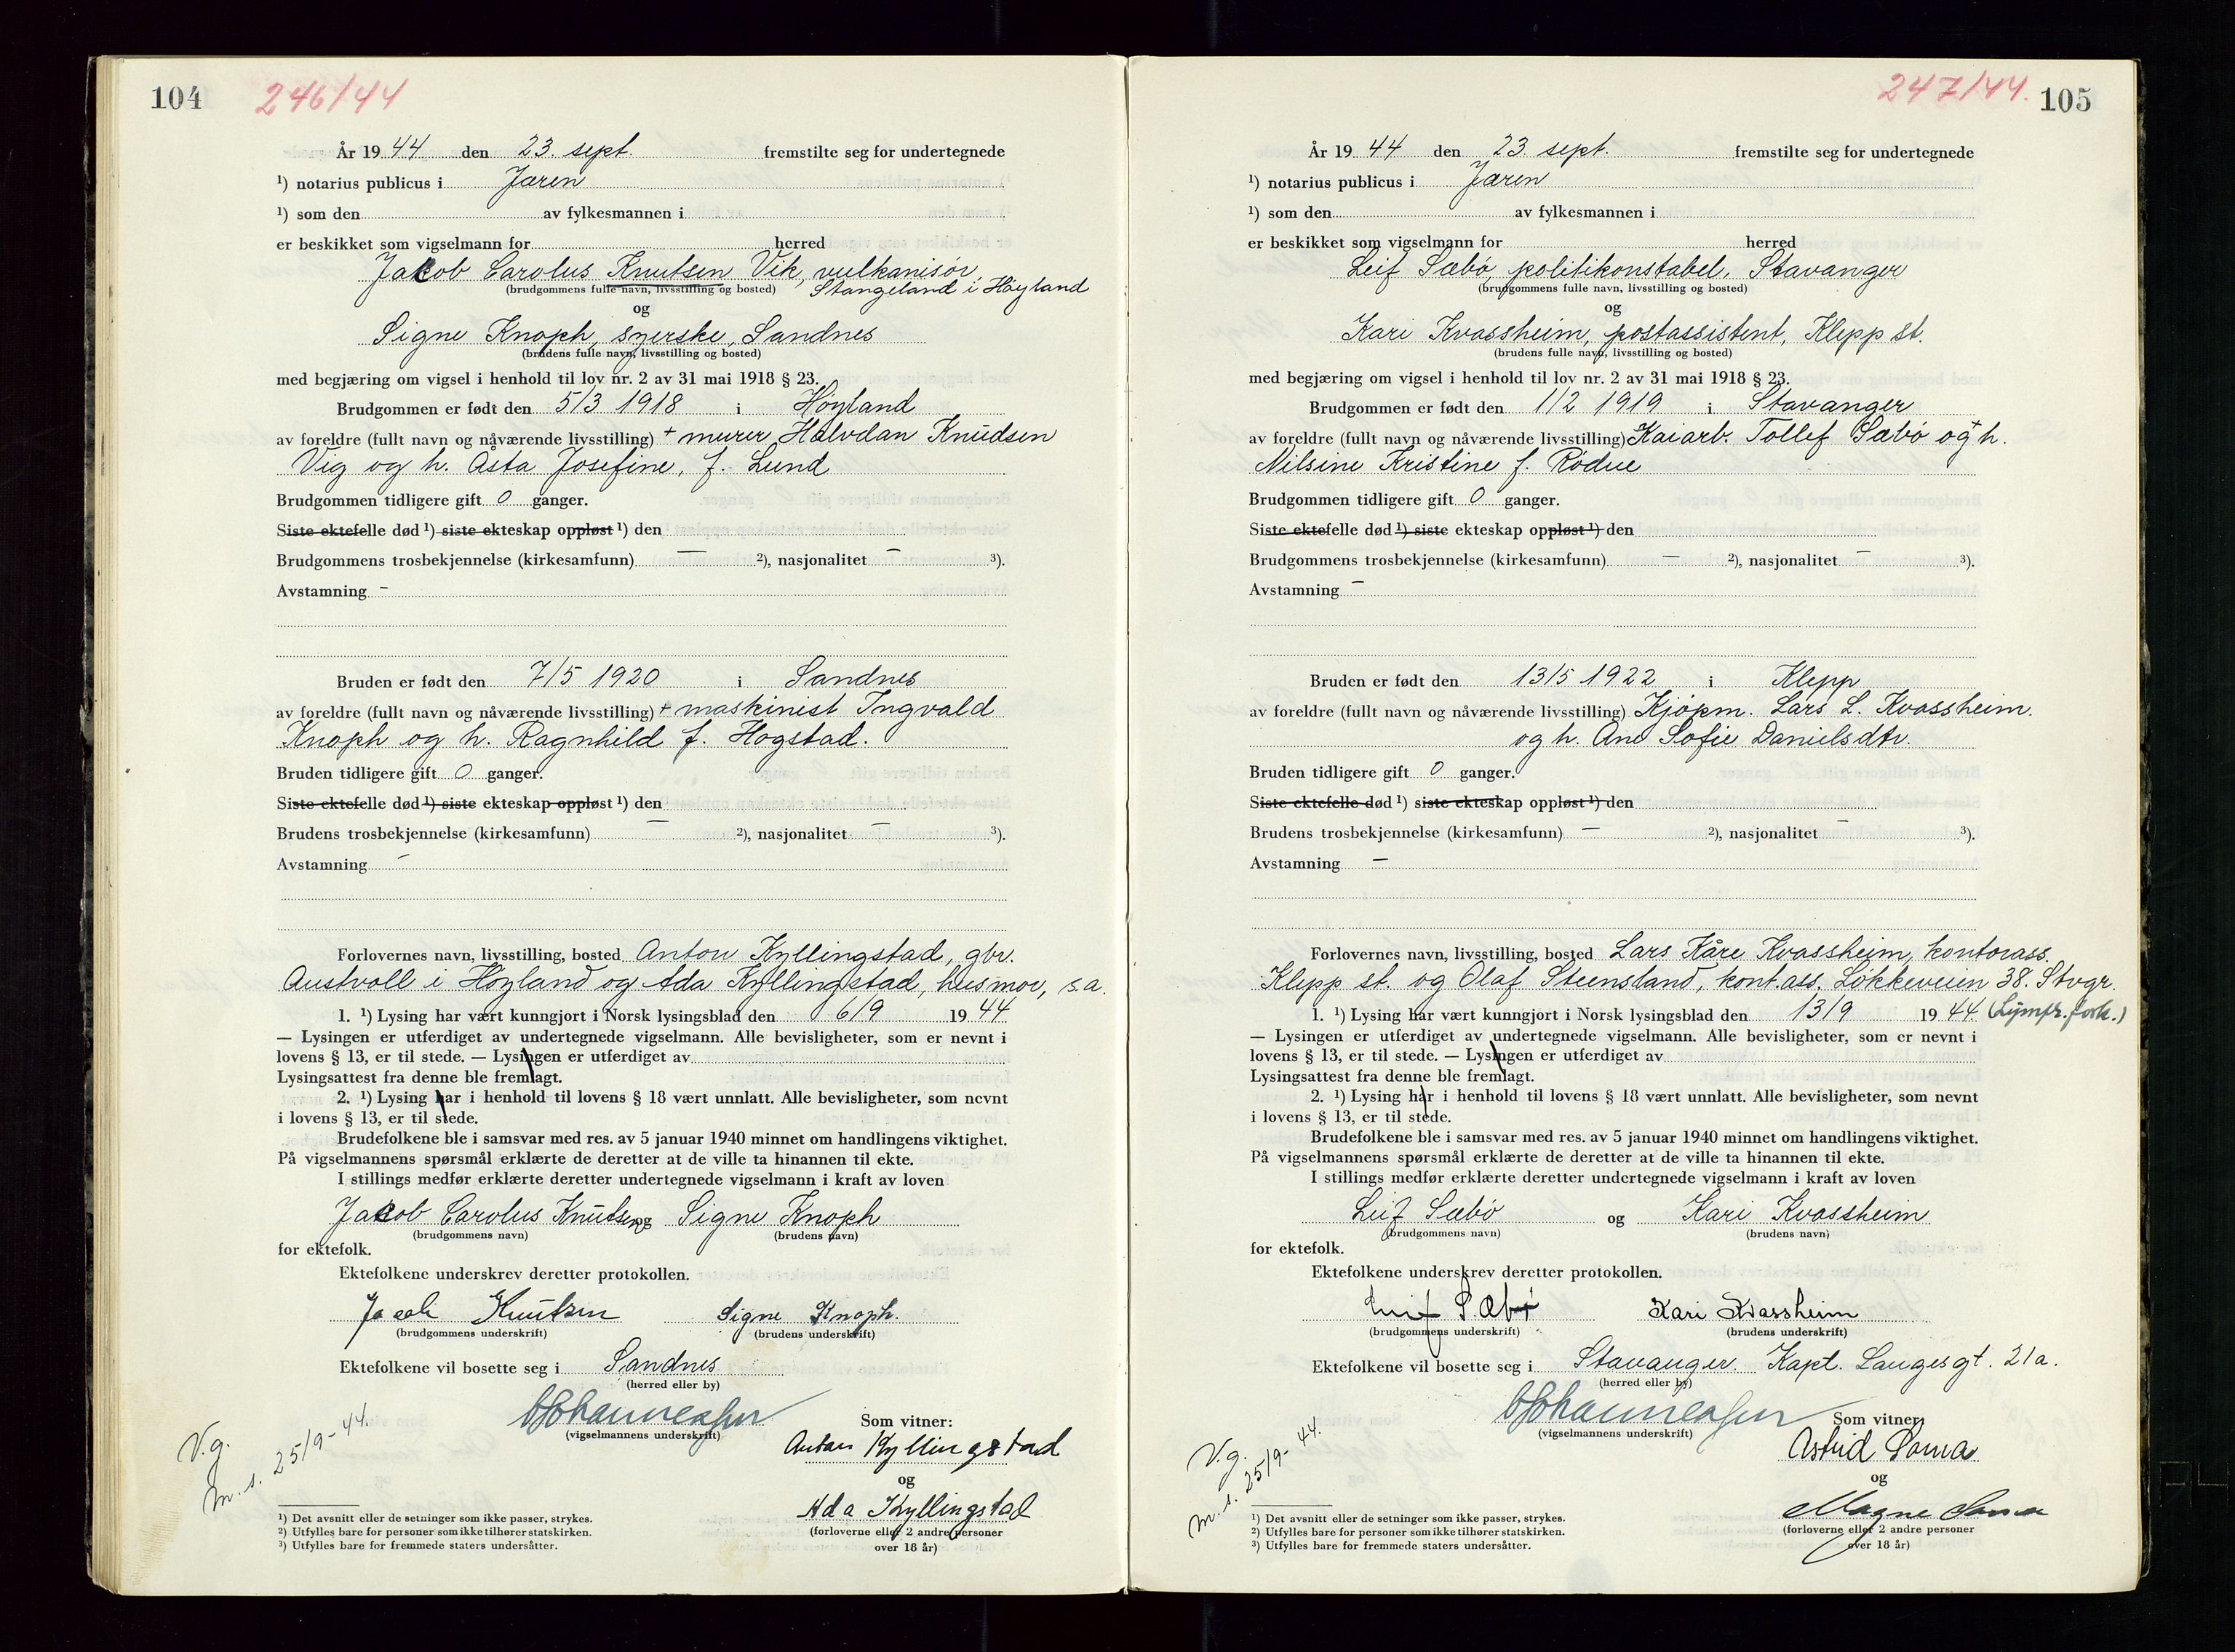 104 246/44
År 1944 den 23. sept. fremstilte seg for undertegnede
¹) notarius publicus i Jæren
¹) som den av fylkesmannen i
er beskikket som vigselmann for herred
Jakob Carolus Knutsen Vik, vulkanisör,
(brudgommens fulle navn, livsstilling og bosted) Stangeland i Høyland
og
Signe Knoph, syerske, Sandnes
(brudens fulle navn, livsstilling og bosted)
med begjæring om vigsel i henhold til lov nr. 2 av 31 mai 1918 § 23.
Brudgommen er født den 5/3 1918 i Höyland
av foreldre (fullt navn og nåværende livsstilling) + murer Halvdan Knudsen
Vig og h. Åsta Josefine, f. Lund
Brudgommen tidligere gift 0 ganger.
Siste ektefelle død ¹) siste ekteskap oppløst ¹) den
Brudgommens trosbekjennelse (kirkesamfunn) — ²), nasjonalitet — ³).
Avstamning -
Bruden er født den 7/5 1920 i Sandnes
av foreldre (fullt navn og nåværende livsstilling) + maskinist Ingvald
Knoph og h. Ragnhild f. Hogstad.
Bruden tidligere gift 0 ganger.
Siste ektefelle død ¹) siste ekteskap oppløst ¹) den
Brudens trosbekjennelse (kirkesamfunn) — ²), nasjonalitet — ³).
Avstamning -
Forlovernes navn, livsstilling, bosted Anton Kyllingstad, gbr.
Austvoll i Höyland og Ada Kyllingstad, husmor, s.a.
1. ¹) Lysing har vært kunngjort i Norsk lysingsblad den 6/9 1944
— Lysingen er utferdiget av undertegnede vigselmann. Alle bevisligheter, som er nevnt i
lovens § 13, er til stede. — Lysingen er utferdiget av
Lysingsattest fra denne ble fremlagt.
2. ¹) Lysing har i henhold til lovens § 18 vært unnlatt. Alle bevisligheter, som nevnt
i lovens § 13, er til stede.
Brudefolkene ble i samsvar med res. av 5 januar 1940 minnet om handlingens viktighet.
På vigselmannens spørsmål erklærte de deretter at de ville ta hinannen til ekte.
I stillings medfør erklærte deretter undertegnede vigselmann i kraft av loven
Jakob Carolus Knutsen og Signe Knoph
(brudgommens navn) (brudens navn)
for ektefolk.
Ektefolkene underskrev deretter protokollen.
Jacob Knutsen Signe Knoph.
(brudgommens underskrift) (brudens underskrift)
Ektefolkene vil bosette seg i Sandnes
(herred eller by)
(vigselmannens underskrift)
Som vitner:
Anton Kyllingstad
og
Ada Kyllingstad
(forloverne eller 2 andre personer
over 18 år)
V.g.
m.s. 25/9-44.
¹) Det avsnitt eller de setninger som ikke passer, strykes.
²) Utfylles bare for personer som ikke tilhører statskirken.
³) Utfylles bare for fremmede staters undersåtter.
247/44. 105
År 1944 den 23. sept. fremstilte seg for undertegnede
¹) notarius publicus i Jæren
¹) som den av fylkesmannen i
er beskikket som vigselmann for herred
Leif Sæbö, politikonstabel, Stavanger
(brudgommens fulle navn, livsstilling og bosted)
og
Kari Kvassheim, postassistent, Klepp st.
(brudens fulle navn, livsstilling og bosted)
med begjæring om vigsel i henhold til lov nr. 2 av 31 mai 1918 § 23.
Brudgommen er født den 1/2 1919 i Stavanger
av foreldre (fullt navn og nåværende livsstilling) Kaiarb. Tollef Sæbö og + h.
Nilsine Kristine f. Rödne
Brudgommen tidligere gift 0 ganger.
Siste ektefelle død ¹) siste ekteskap oppløst ¹) den
Brudgommens trosbekjennelse (kirkesamfunn) — ²), nasjonalitet — ³).
Avstamning -
Bruden er født den 13/5 1922 i Klepp
av foreldre (fullt navn og nåværende livsstilling) Kjöpm. Lars L. Kvassheim.
og h. Ane Sofie Danielsdtr.
Bruden tidligere gift 0 ganger.
Siste ektefelle død ¹) siste ekteskap oppløst ¹) den
Brudens trosbekjennelse (kirkesamfunn) — ²), nasjonalitet - ³).
Avstamning —
Forlovernes navn, livsstilling, bosted Lars Kåre Kvassheim, kontorass.
Klepp st. og Olaf Steensland, kont.ass. Lökkeveien 38. Stvgr.
1. ¹) Lysing har vært kunngjort i Norsk lysingsblad den 13/9 1944 (Lysnfr. fork.)
— Lysingen er utferdiget av undertegnede vigselmann. Alle bevisligheter, som er nevnt i
lovens § 13, er til stede. — Lysingen er utferdiget av
Lysingsattest fra denne ble fremlagt.
2. ¹) Lysing har i henhold til lovens § 18 vært unnlatt. Alle bevisligheter, som nevnt
i lovens § 13, er til stede.
Brudefolkene ble i samsvar med res. av 5 januar 1940 minnet om handlingens viktighet.
På vigselmannens spørsmål erklærte de deretter at de ville ta hinannen til ekte.
I stillings medfør erklærte deretter undertegnede vigselmann i kraft av loven
Leif Sæbö og Kari Kvassheim
(brudgommens navn) (brudens navn)
for ektefolk.
Ektefolkene underskrev deretter protokollen.
Leif Sæbø Kari Kvassheim
(brudgommens underskrift) (brudens underskrift)
Ektefolkene vil bosette seg i Stavanger. Kapt. Langesgt. 21a.
(herred eller by)
(vigselmannens underskrift)
Som vitner
Astrid Soma
og
Magne Soma
(forloverne eller 2 andre personer
over 18 år)
V.g.
m.s. 25/9-44.
¹) Det avsnitt eller de setninger som ikke passer, strykes.
²) Utfylles bare for personer som ikke tilhører statskirken.
³) Utfylles bare for fremmede staters undersåtter.